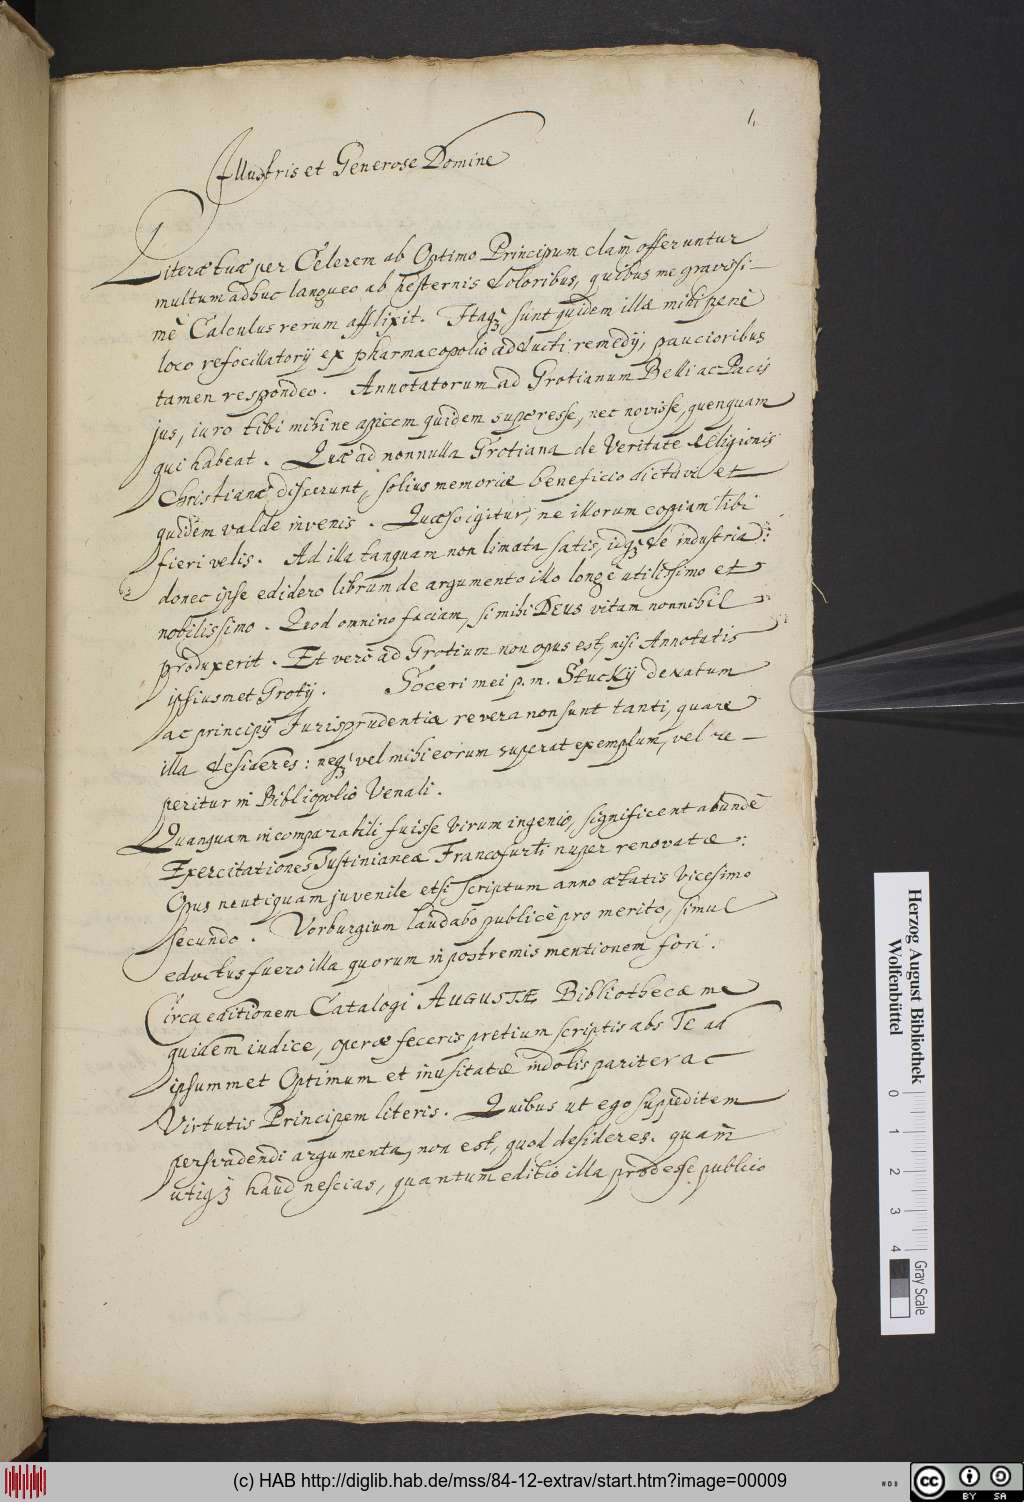 1.
Illustris et Generose Domine
Literæ tuæ per Celerem ab Optimo Principum clam offeruntur
multum adhuc langueo ab hesternis doloribus, quibus me gravissi-
mè Calculus rerum afflixit. Itaq; sunt quidem illæ mihi penè
loco refocillatorij ex pharmacopolio adducti remedij, paucioribus
tamen respondeo. Annotatorum ad Grotianum Belli ac Pacis
jus, iuro tibi mihi ne apicem quidem superesse, nec novisse, quenquam
qui habeat. Quæ ad nonnulla Grotiana de Veritate Religionis
Christianæ disserunt, solius memoriæ beneficio dictavi et
quidem valde invenis. Quæso igitur, ne illorum copiam tibi
fieri velis. Ad illa tanquam non limata satis, idq; de industria:
donec ipse edidero librum de argumento illo longè utilissimo et
nobilissimo. Quod omnino faciam, si mihi DEUS vitam nonnihil
produxerit. Et verò ad Grotium non opus est, nisi Annotatis
ipsiusmet Grotij. Soceri mei p. m. Stuckij dexatum
ac principij Jurisprudentiæ revera non sunt tanti, quare
illa desideres: neq; vel mihi eorum superat exemplum, vel re-
peritur in Bibliopolio Venali.
Quanquam incomparabili fuisse virum ingenio, significent abundè
Exercitationes Justinianeæ Francofurti nuper renovatæ:
Opus neutiquam juvenile etsi scriptum anno ætatis vicesimo
secundo. Vorburgium laudabo publicè pro merito, simul
edoctus fuero illa quorum in postremis mentionem fori.
Circa editionem Catalogi AUGUSTÆ Bibliothecæ me
quidem iudice, operæ feceris pretium scriptis abs Te ad
ipsummet Optimum et inusitatæ indolis pariter ac
Virtutis Principem literis. Quibus ut ego suppeditem
persvadendi argumenta, non est, quod desideres. quam
utiq; haud nescias, quantum editio illa prodesse publico
Herzog August Bibliothek
Wolfenbüttel
0 1 2 3 4
Gray Scale
(c) HAB http://diglib.hab.de/mss/84-12-extrav/start.htm?image=00009
cc BY SA